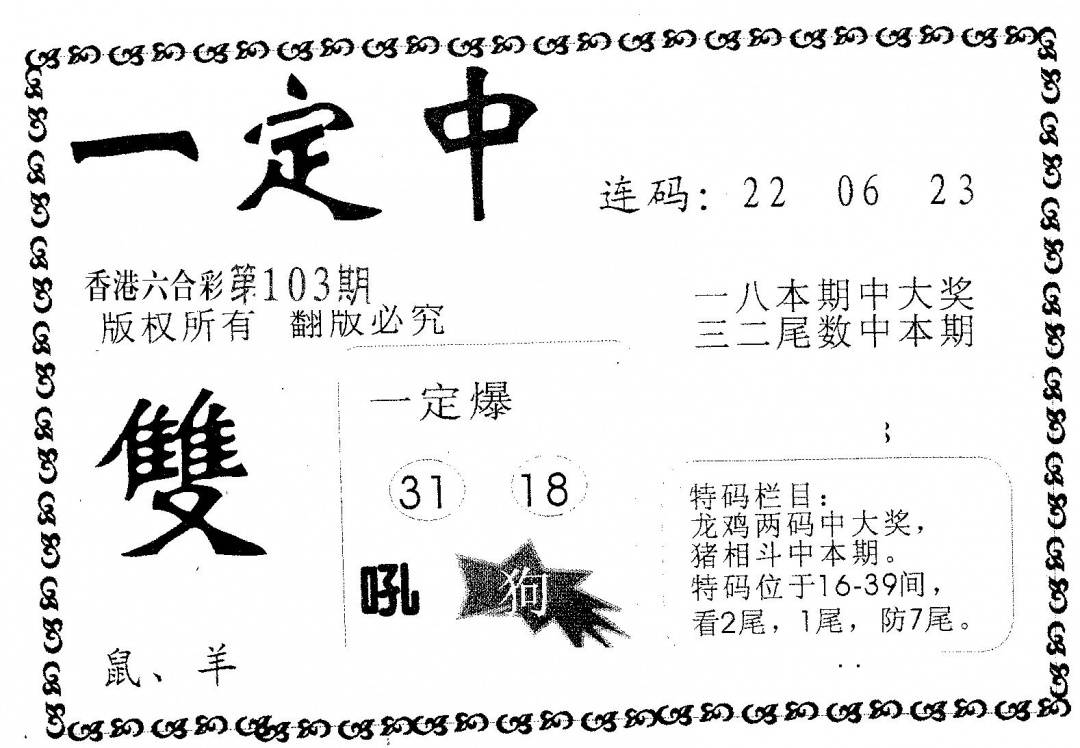 一定中
连码：22 06 23
香港六合彩第103期
版权所有 翻版必究
一八本期中大奖
三二尾数中本期
雙
鼠、羊
一定爆
31 18
吼 狗
特码栏目：
龙鸡两码中大奖，
猪相斗中本期。
特码位于16-39间，
看2尾，1尾，防7尾。